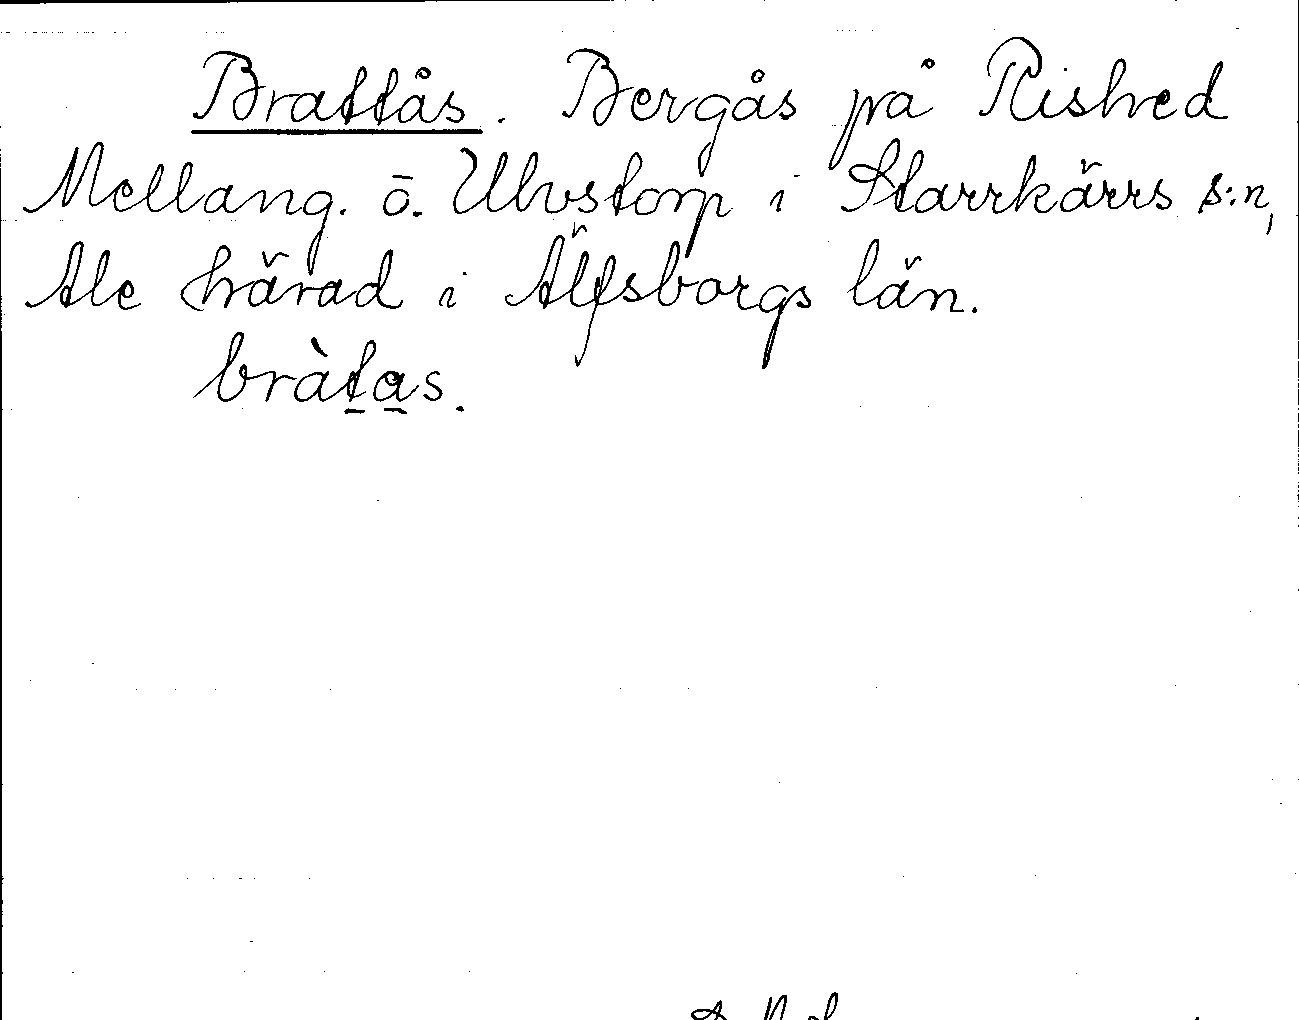 Brattås. Bergås på Rished
Mellang. ō. Ulvstorp i Starrkärrs s:n,
Ale härad i Älfsborgs län.
bràtas.